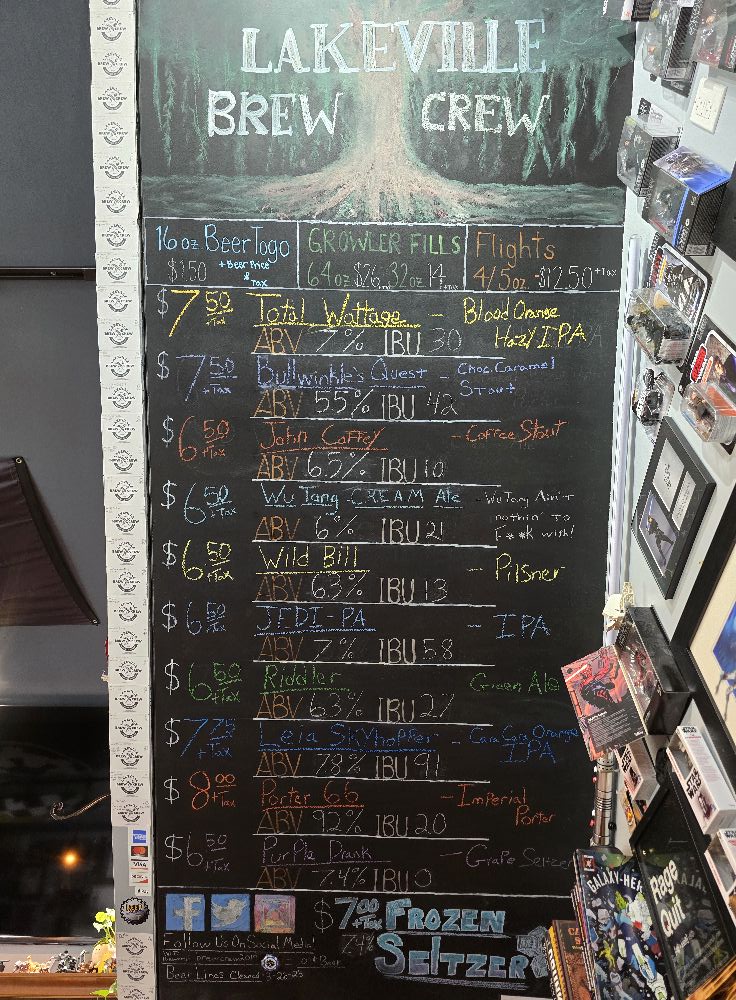 LAKEVILLE
BREW CREW
16 oz Beer To go
$1.50 + Beer Price & Tax
GROWLER FILLS
64oz $26 32oz 14
Flights
4/5oz. -$12.50 +Tax
$7.50 +Tax Total Wattage - Blood Orange
Hazy IPA
ABV 7% IBU 30
$7.50 +Tax Bullwinkle's Quest - Choc. Caramel
Stout
ABV 5.5% IBU 42
$6.50 +Tax John Coffey - Coffee Stout
ABV 6.5% IBU 10
$6.50 +Tax Wu Tang CREAM Ale - Wu Tang Ain't
nothin' To
F**K with!
ABV 6% IBU 21
$6.50 +Tax Wild Bill - Pilsner
ABV 6.3% IBU 13
$6.50 +Tax JEDI-PA - IPA
ABV 7% IBU 58
$6.50 +Tax Riddler Green Ale
ABV 6.3% IBU 27
$7.75 +Tax Leia Skyhopper - Cara Cara Orange
IPA
ABV 7.8% IBU 91
$8.00 +Tax Porter 66 - Imperial
Porter
ABV 9.2% IBU 20
$6.50 +Tax Purple Drank - Grape Seltzer
ABV 7.4% IBU 0
$7.00 +Tax FROZEN
7.4% SELTZER
Follow Us On Social Media!
Beer Lines Cleaned
VISA
BEER
STAR WARS
GALAXY-HER
Rage
Quit